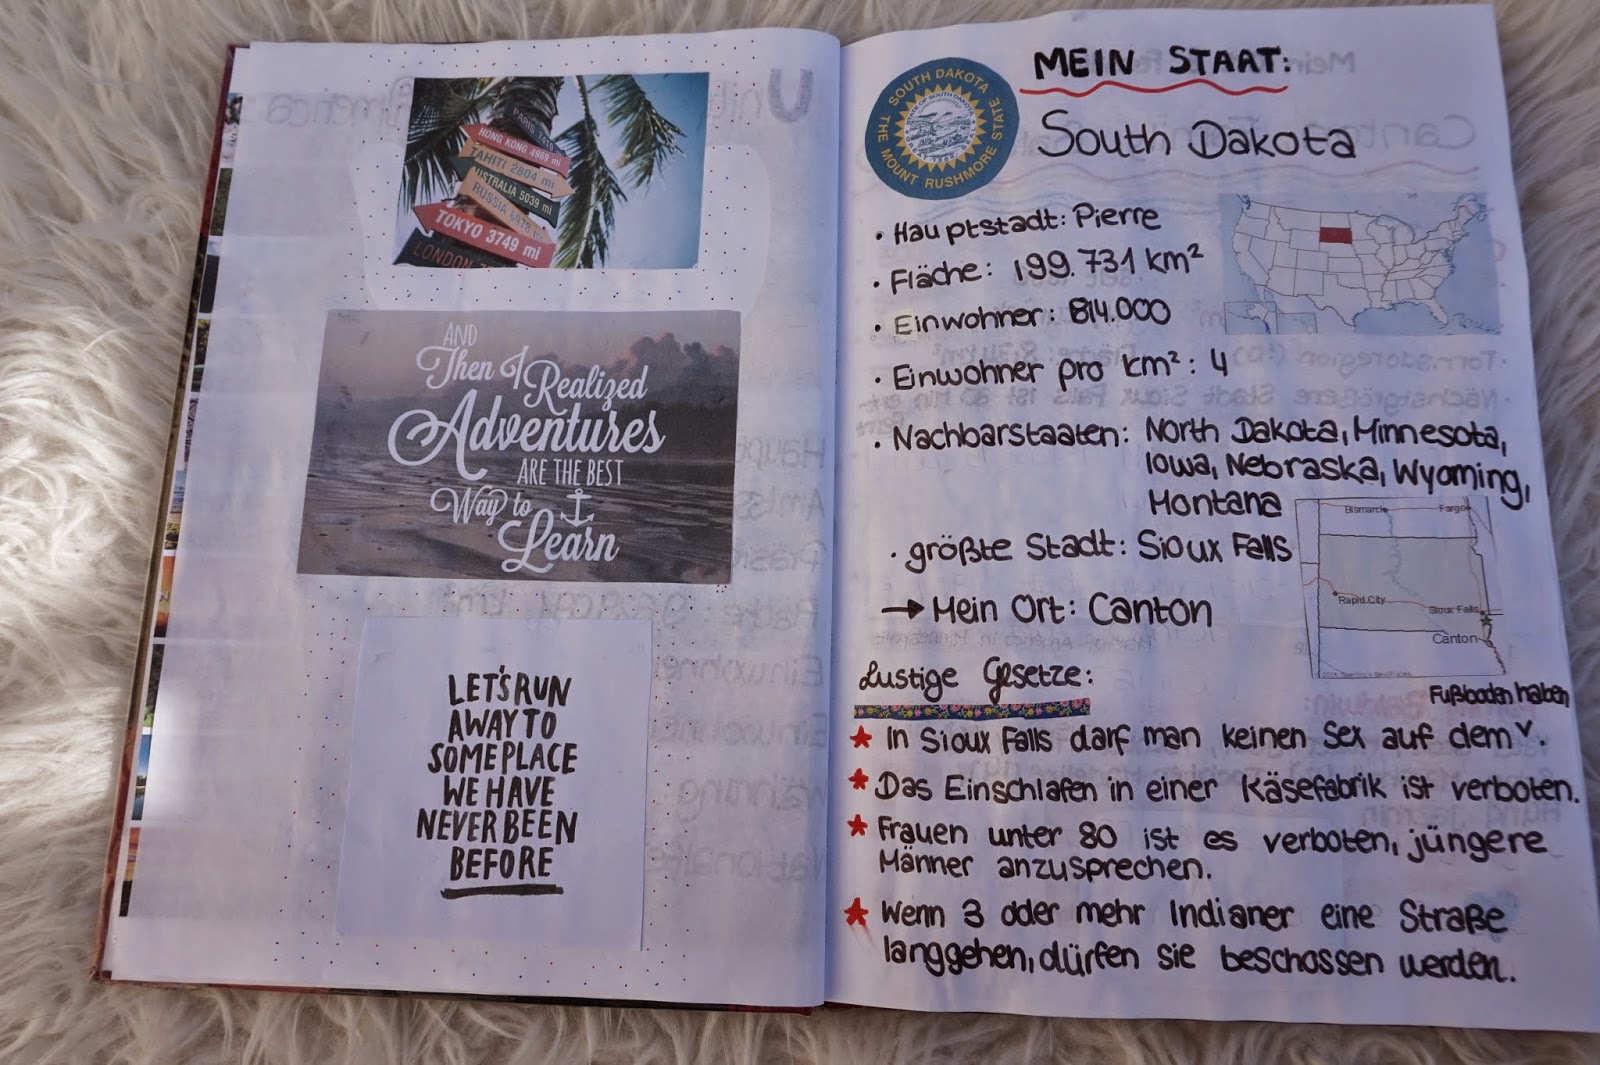 PARIS
HONG KONG 4969 mi
TAHITI 2804 mi
AUSTRALIA 5039 mi
RUSSIA 6978 mi
TOKYO 3749 mi
LONDON
AND
Then I
Realized
Adventures
ARE THE BEST
Way to
Learn
LET'S RUN
AWAY TO
SOMEPLACE
WE HAVE
NEVER BEEN
BEFORE
SOUTH DAKOTA
THE MOUNT RUSHMORE STATE
MEIN STAAT:
South Dakota
• Hauptstadt: Pierre
• Fläche: 199.731 km²
• Einwohner: 814.000
• Einwohner pro km²: 4
• Nachbarstaaten: North Dakota, Minnesota,
Iowa, Nebraska, Wyoming,
Montana
• größte Stadt: Sioux Falls
→ Mein Ort: Canton
Bismarck
Fargo
Rapid City
Sioux Falls
Canton
Lustige Gesetze:
Fußboden haben
★ In Sioux Falls darf man keinen Sex auf dem ᵛ.
★ Das Einschlafen in einer Käsefabrik ist verboten.
★ Frauen unter 80 ist es verboten, jüngere
Männer anzusprechen.
★ Wenn 3 oder mehr Indianer eine Straße
langgehen, dürfen sie beschossen werden.